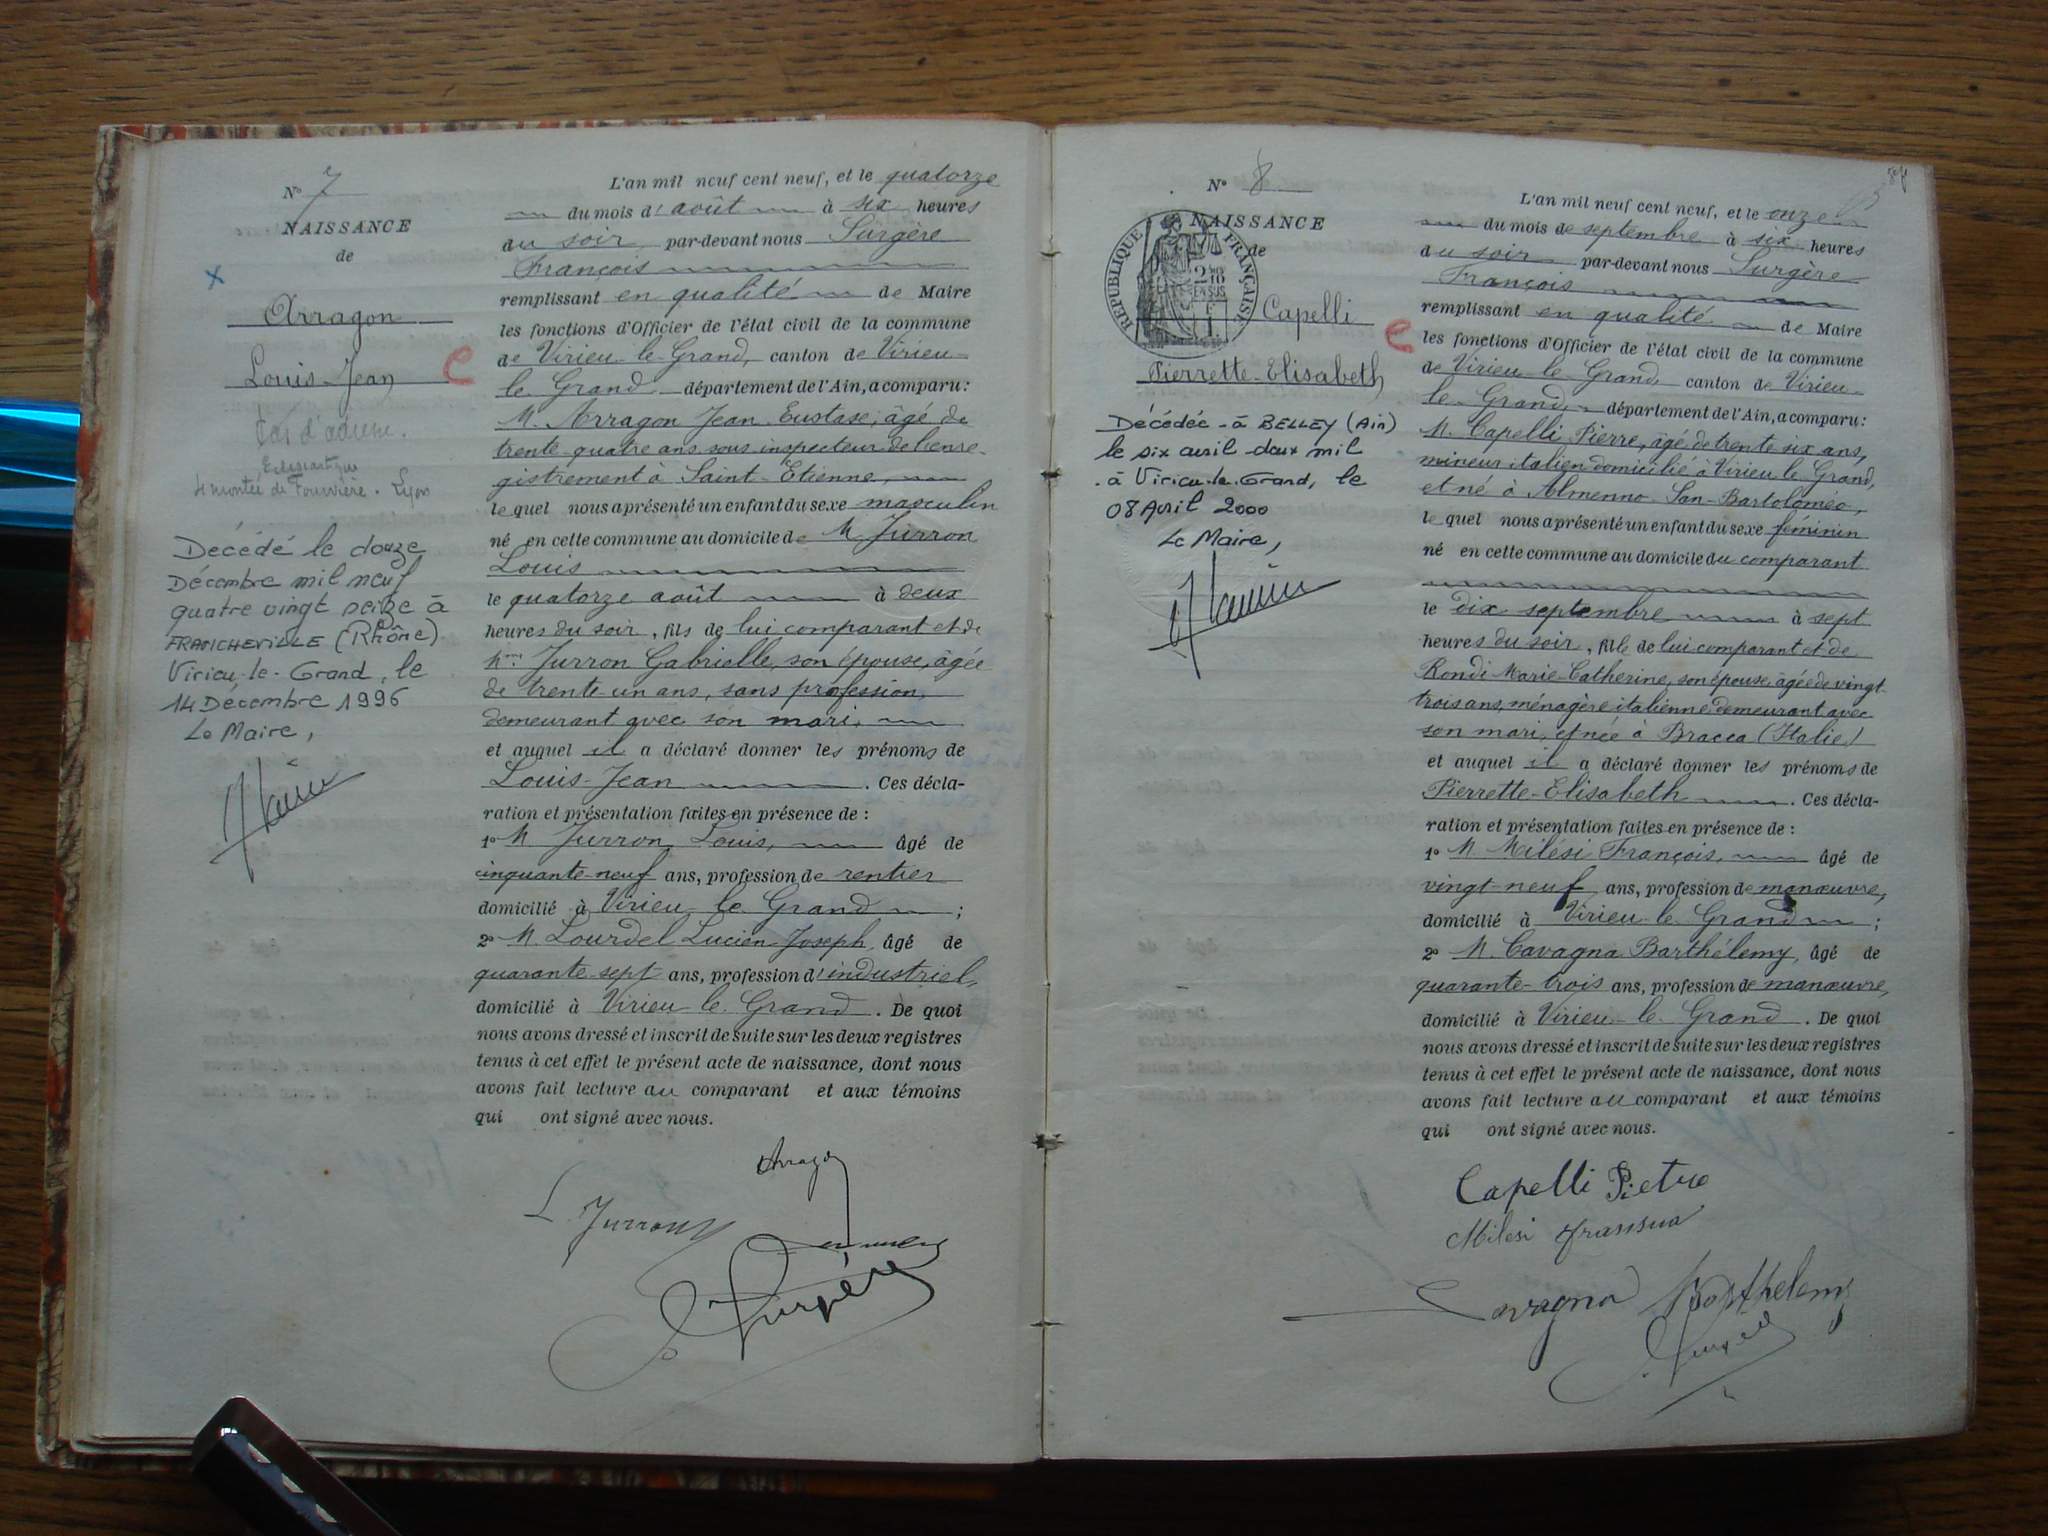 N° 7
NAISSANCE
de
Arragon
Louis-Jean
Pas d'adresse.
Ecclésiastique
4 montée de Fourvière. Lyon
Décédé le douze
Décembre mil neuf
quatre vingt seize à
FRANCHEVILLE (Rhône)
Virieu-le-Grand, le
14 Décembre 1996
Le Maire,
L'an mil neuf cent neuf, et le quatorze
du mois d'août à six heures
du soir par-devant nous Surgère
François
remplissant en qualité de Maire
les fonctions d'Officier de l'état civil de la commune
de Virieu-le-Grand, canton de Virieu-
le-Grand département de l'Ain, a comparu:
M. Arragon Jean Eustase, âgé de
trente-quatre ans sous inspecteur de l'enre-
gistrement à Saint-Etienne,
lequel nous a présenté un enfant du sexe masculin
né en cette commune au domicile de M Jurron
Louis
le quatorze août à deux
heures du soir, fils de lui comparant et de
Mme Jurron Gabrielle, son épouse, âgée
de trente-un ans, sans profession,
demeurant avec son mari,
et auquel il a déclaré donner les prénoms de
Louis-Jean . Ces décla-
ration et présentation faites en présence de :
1° M Jurron Louis, âgé de
cinquante-neuf ans, profession de rentier
domicilié à Virieu-le-Grand ;
2° M. Lourdel Lucien Joseph âgé de
quarante-sept ans, profession d'industriel,
domicilié à Virieu-le-Grand . De quoi
nous avons dressé et inscrit de suite sur les deux registres
tenus à cet effet le présent acte de naissance, dont nous
avons fait lecture au comparant et aux témoins
qui ont signé avec nous.
Arragon
L. Jurron
Surgère
N° 8
NAISSANCE
de
RÉPUBLIQUE FRANÇAISE
2/10
EN SUS
Capelli
Pierrette-Elisabeth
Décédée à BELLEY (Ain)
le six avril deux mil
à Virieu-le-Grand, le
08 Avril 2000
Le Maire,
L'an mil neuf cent neuf, et le onze
du mois de septembre à six heures
du soir par-devant nous Surgère
François
remplissant en qualité de Maire
les fonctions d'Officier de l'état civil de la commune
de Virieu-le-Grand, canton de Virieu-
le-Grand, département de l'Ain, a comparu:
M. Capelli Pierre, âgé de trente six ans,
mineur italien domicilié à Virieu-le-Grand,
et né à Almenno-San-Bartoloméo,
lequel nous a présenté un enfant du sexe féminin
né en cette commune au domicile du comparant
le dix septembre à sept
heures du soir, fille de lui comparant et de
Rondi Marie-Catherine, son épouse, âgée de vingt-
trois ans, ménagère italienne demeurant avec
son mari, et née à Bracca (Italie)
et auquel il a déclaré donner les prénoms de
Pierrette-Elisabeth . Ces décla-
ration et présentation faites en présence de :
1° M Milési François, âgé de
vingt-neuf ans, profession de manœuvre,
domicilié à Virieu-le-Grand ;
2° M. Cavagna Barthélemy, âgé de
quarante-trois ans, profession de manœuvre,
domicilié à Virieu-le-Grand . De quoi
nous avons dressé et inscrit de suite sur les deux registres
tenus à cet effet le présent acte de naissance, dont nous
avons fait lecture au comparant et aux témoins
qui ont signé avec nous.
Capelli Pietro
Milesi
Cavagna Barthelemy
Surgère